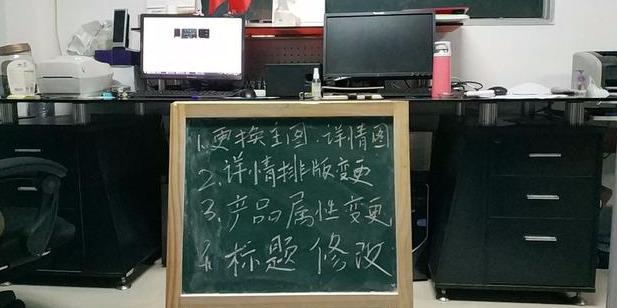 1.更换主图.详情图
2.详情排版变更
3.产品属性变更
4.标题修改